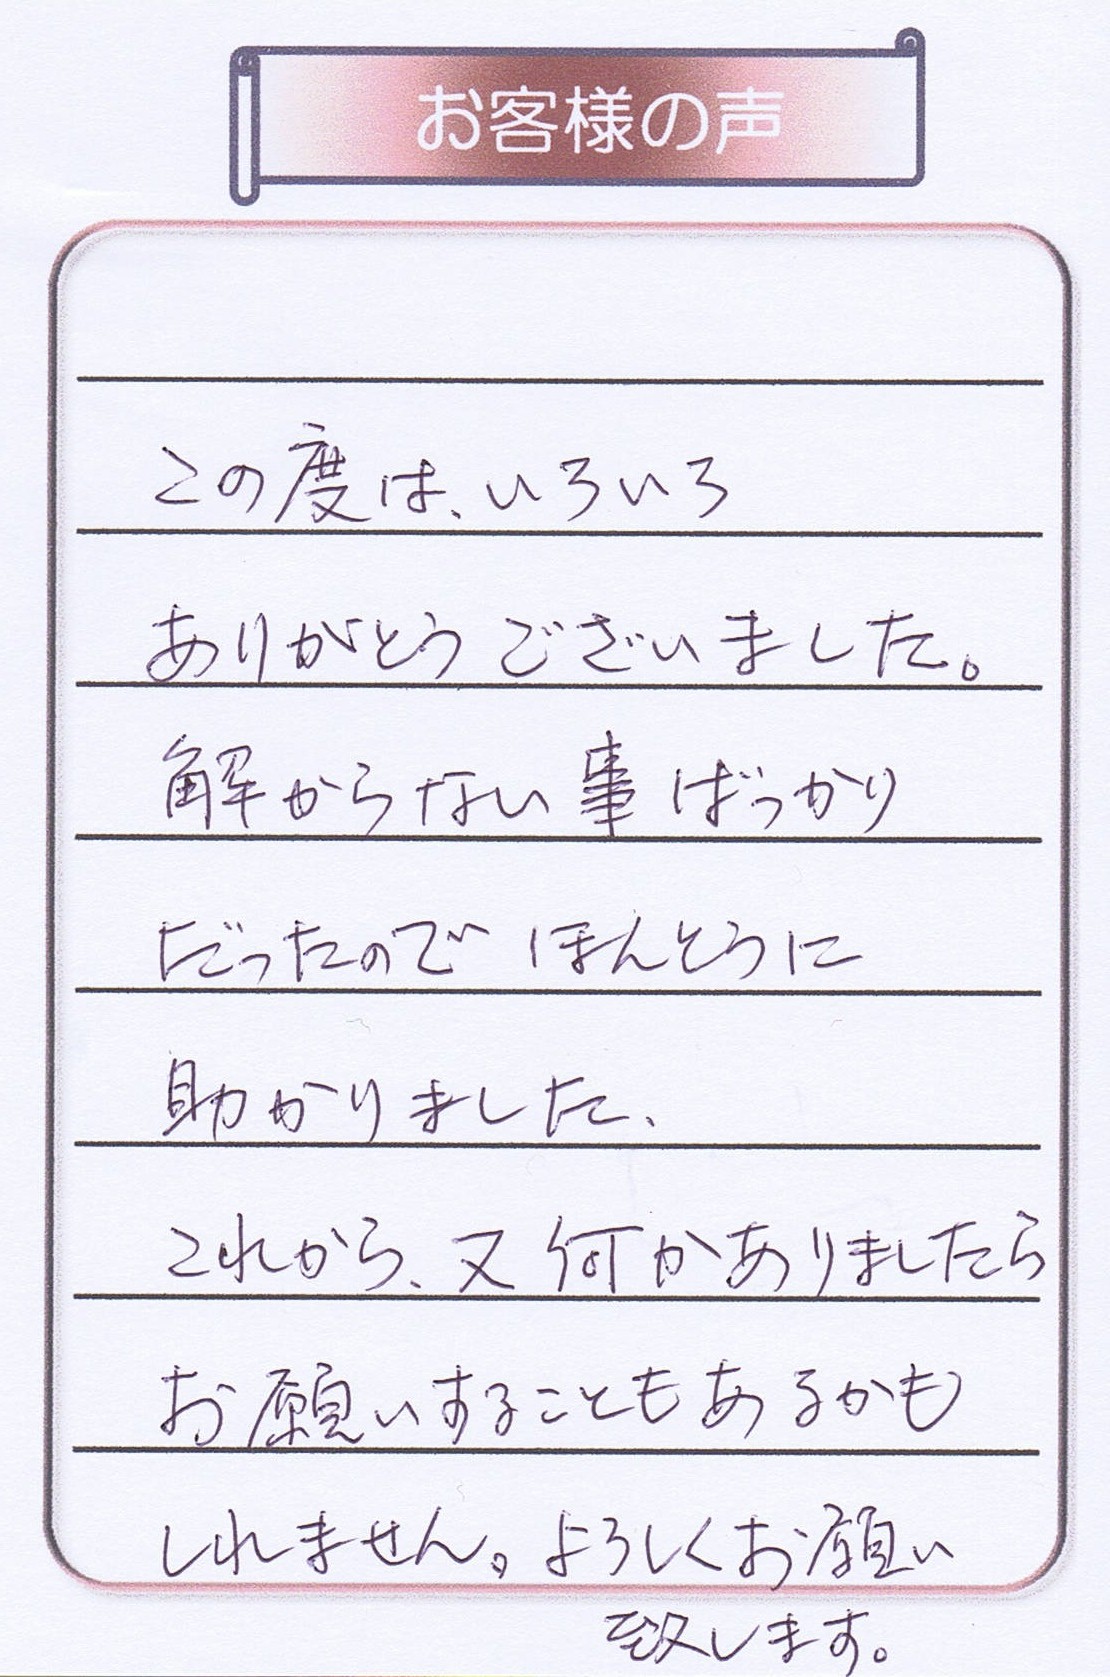 お客様の声
この度は、いろいろ
ありがとうございました。
解からない事ばっかり
だったのでほんとうに
助かりました、
これから、又何かありましたら
お願いすることもあるかも
しれません。よろしくお願い
致します。